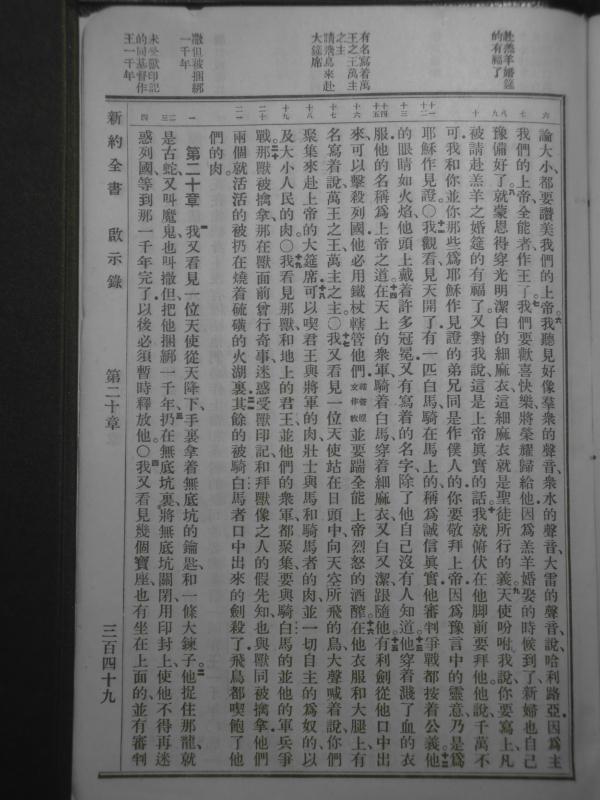 赴羔羊婚筵
的有福了
有名寫着萬
王之王萬主
之主
請飛鳥來赴
大筵席
撒但被捆綁
一千年
未受獸印記
的同基督作
王一千年
六 論大小、都要讚美我們的上帝我聽見好像羣衆的聲音、衆水的聲音、大雷的聲音、說哈利路亞因爲主
七 我們的上帝、全能者作王了。我們要歡喜快樂、將榮耀歸給他因爲羔羊婚娶的時候到了新婦也自己
八九 豫備好了就蒙恩得穿光明潔白的細麻衣這細麻衣就是聖徒所行的義天使吩咐我說你要寫上凡
十 被請赴羔羊之婚筵的有福了又對我說這是上帝眞實的話我就俯伏在他脚前要拜他他說千萬不
可我和你並你那些爲耶穌作見證的弟兄同是作僕人的你要敬拜上帝因爲豫言中的靈意乃是爲
十一十二 耶穌作見證〇我觀看見天開了有一匹白馬騎在馬上的稱爲誠信眞實他審判爭戰都按着公義他
十三 的眼睛如火焰他頭上戴着許多冠冕又有寫着的名字除了他自己沒有人知道他穿着濺了血的衣
十四十五 服他的名稱爲上帝之道在天上的衆軍騎着白馬穿着細麻衣又白又潔跟隨他有利劍從他口中出
十六 來可以擊殺列國他必用鐵杖轄管他們 轄管原文作牧 並要踹全能上帝烈怒的酒醡在他衣服和大腿上有
十七 名寫着說萬王之王萬主之主〇我又看見一位天使站在日頭中向天空所飛的鳥大聲喊着說你們
十八 聚集來赴上帝的大筵席可以喫君王與將軍的肉壯士與馬和騎馬者的肉並一切自主的爲奴的以
十九 及大小人民的肉〇我看見那獸和地上的君王並他們的衆軍都聚集要與騎白馬的並他的軍兵爭
二十 戰那獸被擒拿那在獸面前曾行奇事迷惑受獸印記和拜獸像之人的假先知也與獸同被擒拿他們
二一 兩個就活活的被扔在燒着硫磺的火湖裏其餘的被騎白馬者口中出來的劍殺了飛鳥都喫飽了他
們的肉。
一 第二十章 我又看見一位天使從天降下手裏拿着無底坑的鑰匙和一條大鍊子他捉住那龍就
二三 是古蛇又叫魔鬼也叫撒但把他捆綁一千年扔在無底坑裏將無底坑關閉用印封上使他不得再迷
四 惑列國等到那一千年完了以後必須暫時釋放他〇我又看見幾個寶座也有坐在上面的並有審判
新約全書 啟示錄 第二十章 三百四十九